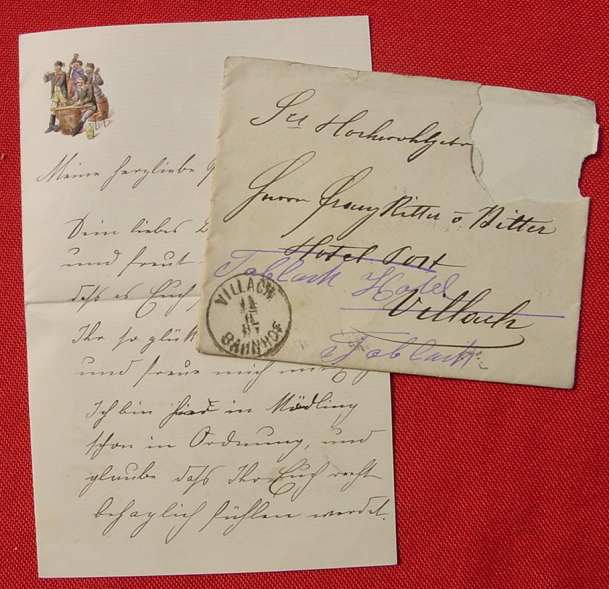 Meine herzliebe
Dein liebes
und freut
daß es Euch
Ihr so glück
und freue mich
Ich bin hier in Mödling
schon in Ordnung, und
glaube daß Ihr Euch recht
behaglich fühlen werdet.
Sr Hochwohlgebo
Herrn Franz Ritter v. Ritter
Hotel Post
Toblach Hotel
Villach
Toblach
VILLACH
BAHNHOF